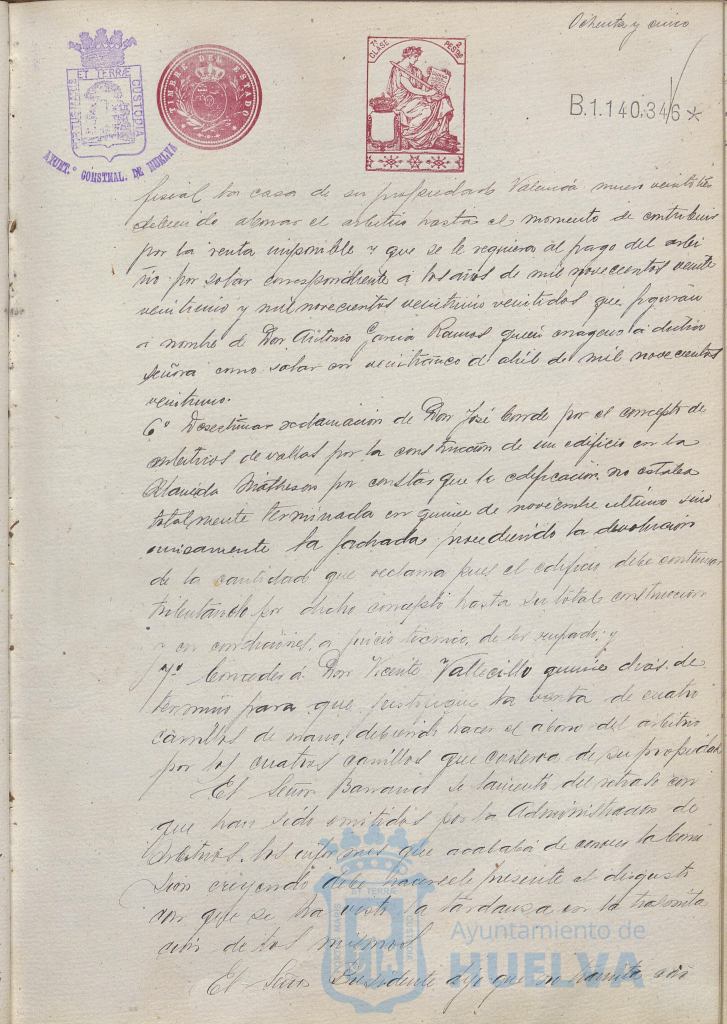 Ochenta y cinco
PORTUS MARIS ET TERRÆ CUSTODIA
AYUNT.º CONSTNAL. DE HUELVA
TIMBRE DEL ESTADO
7ª CLASE 2 PESTAS
B.1.140.346*
fiscal la casa de su propiedad Valencia nuevo veintitres
debiendo abonar el arbitrio hasta el momento de contribuir
por la renta imponible y que se le requiera al pago del arbi
trio por solar correspondiente a los años de mil novecientos veinte
veintiuno y mil novecientos veintiuno veintidos que figuran
a nombre de Don Antonio Garcia Ramos quien enagenó a dicha
señora como solar en veinticinco de abril de mil novecientos
veintiuno.
6º Desestimar reclamacion de Don José Conde por el concepto de
arbitrios de vallas por la construccion de un edificio en la
Alameda Matheson por constar que la edificacion no estaba
totalmente terminada en quince de noviembre ultimo sino
unicamente la fachada, procediendo la devolucion
de la cantidad que reclama pues el edificio debe continuar
tributando por dicho concepto hasta su total construccion
y en condiciones, a juicio tecnico, de ser ocupado; y
7º Conceder á Don Vicente Vallecillo quince dias de
termino para que justifique la venta de cuatro
carrillos de mano, debiendo hacer el abono del arbitrio
por los cuatros carrillos que conserva de su propiedad
El Señor Barranco se lamentó del retraso con
que han sido emitidos por la Administracion de
Arbitrios, los informes que acababa de conocer la Comi
sion creyendo debe hacersele presente el disgusto
con que se ha visto la tardanza en la tramita
cion de los mismos.
El Señor Presidente dijo que
Ayuntamiento de
HUELVA